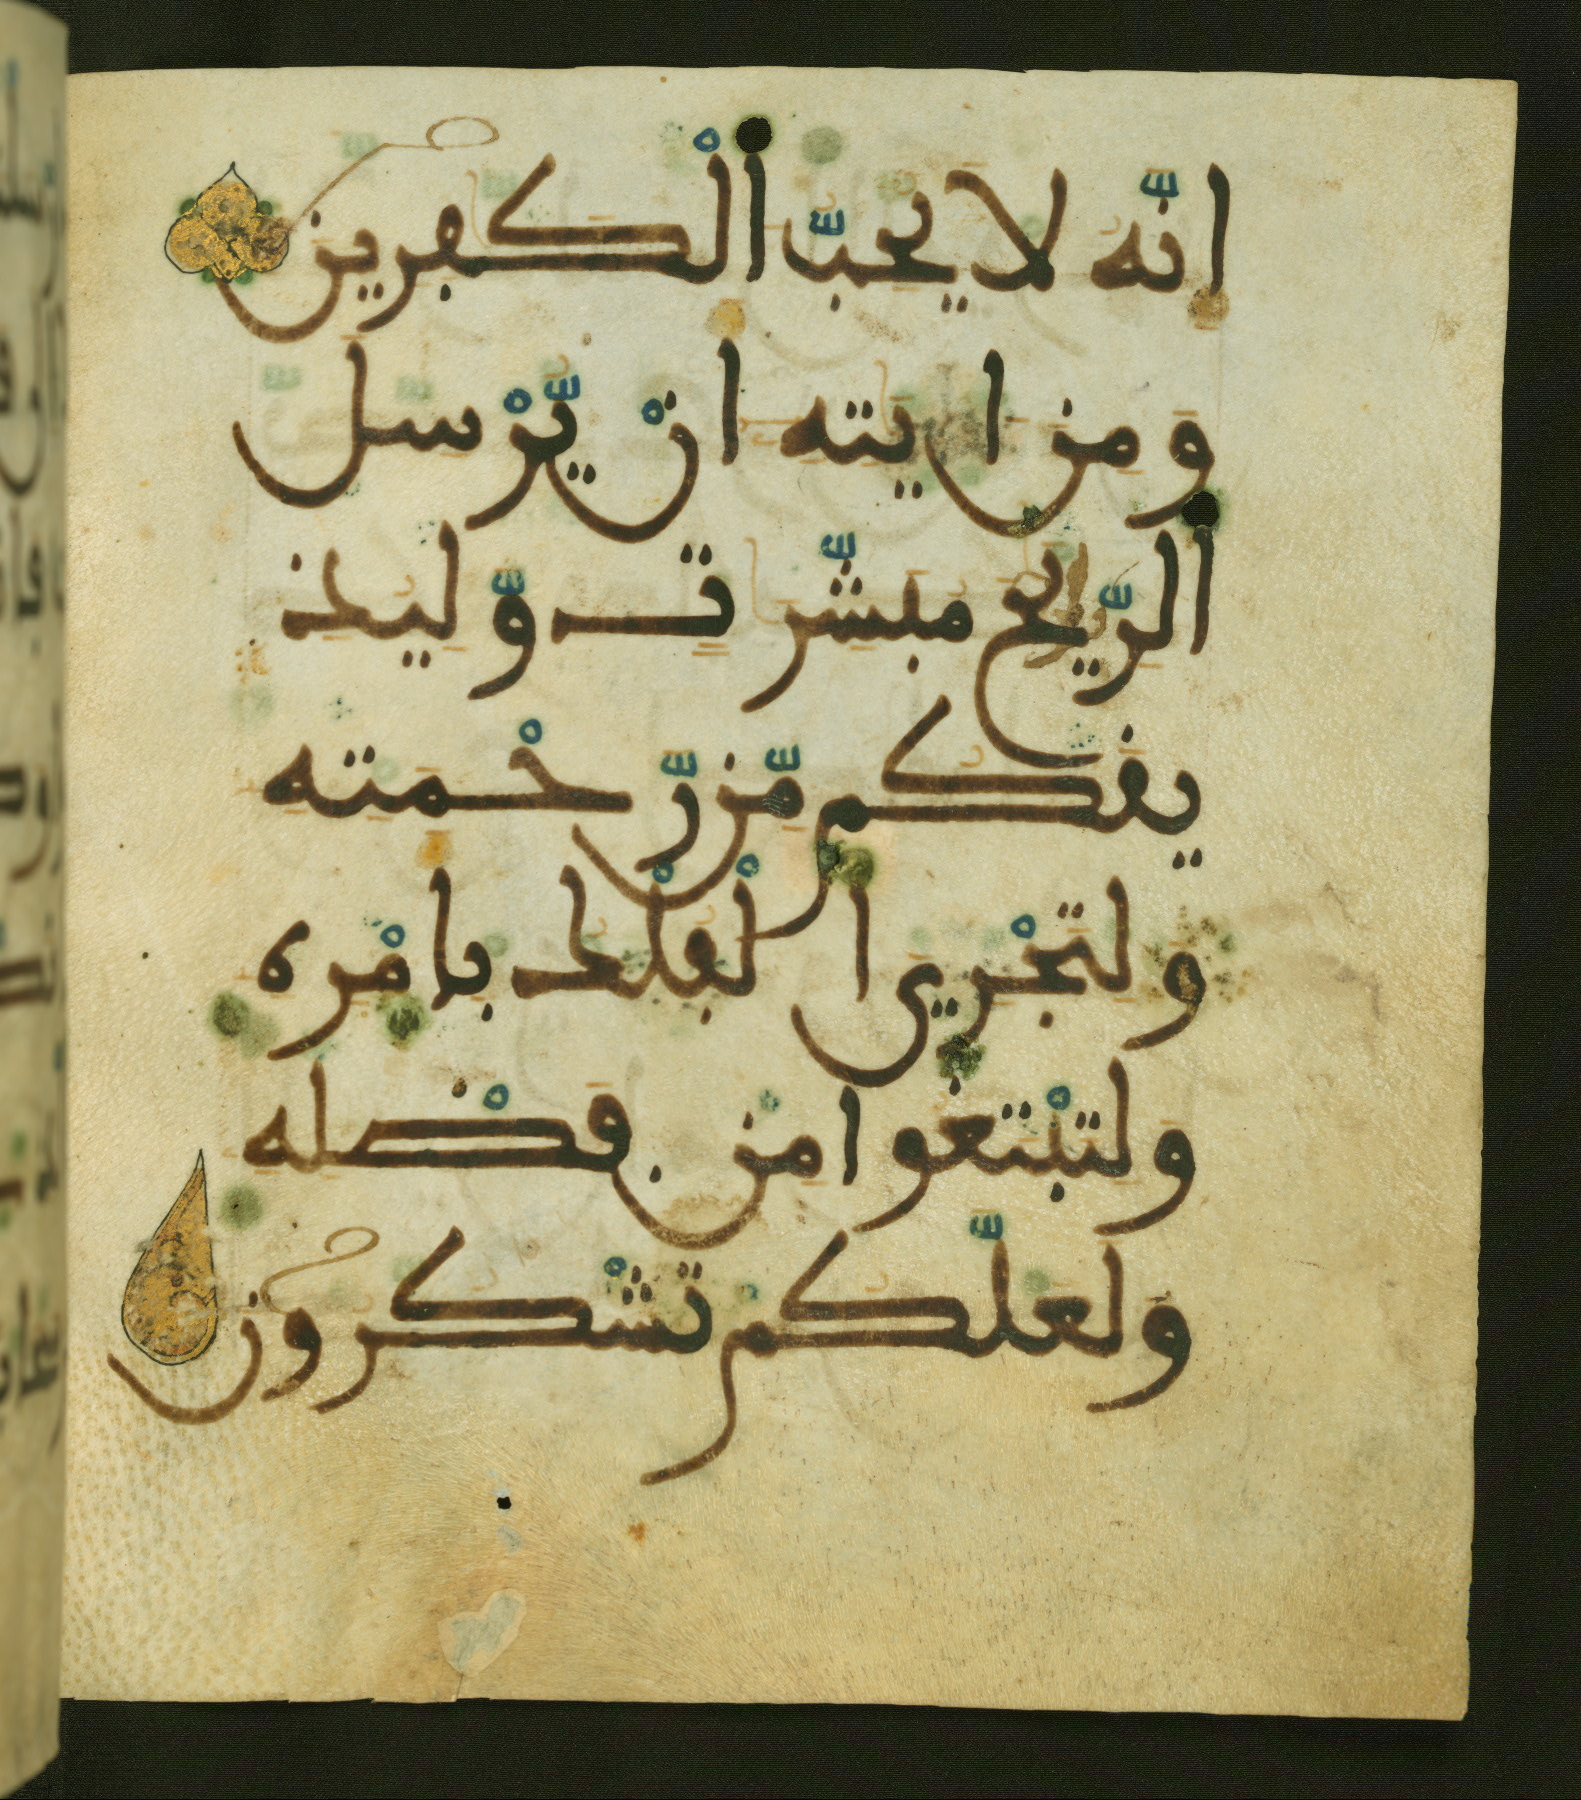 انّه لا يحبّ الْكٰفرين
ومن اٰيٰته انْ يّرْسل
الرّياح مبشّرٰتٖ وّليذ
يفكم مّن رّحْمته
ولتجْري الْفلْك بامْره
ولتبْتغوا منْ فضْله
ولعلّكم تشْكرون